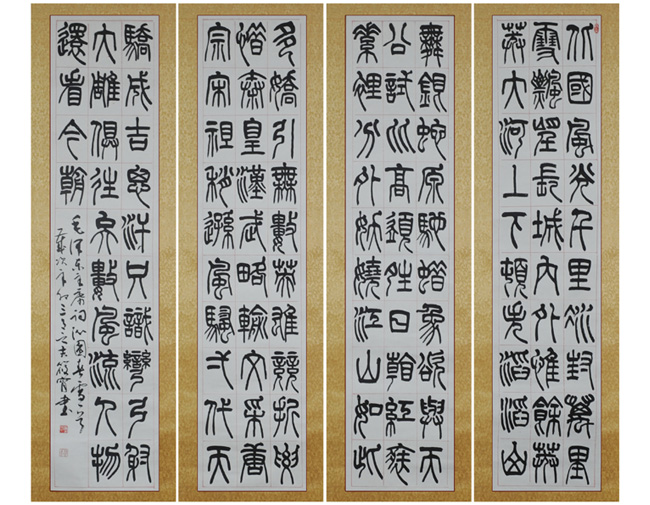 北國風光千里冰封萬里
雪飄望長城內外惟餘莽
莽大河上下頓失滔滔山
舞銀蛇原馳蠟象欲與天
公試比高須晴日看紅裝
素裹分外妖嬈江山如此
多嬌引無數英雄競折腰
惜秦皇漢武略輸文采唐
宗宋祖稍遜風騷弌代天
驕成吉思汗只識彎弓射
大雕俱往矣數風流人物
還看今朝
毛澤東主席詞沁園春雪一首